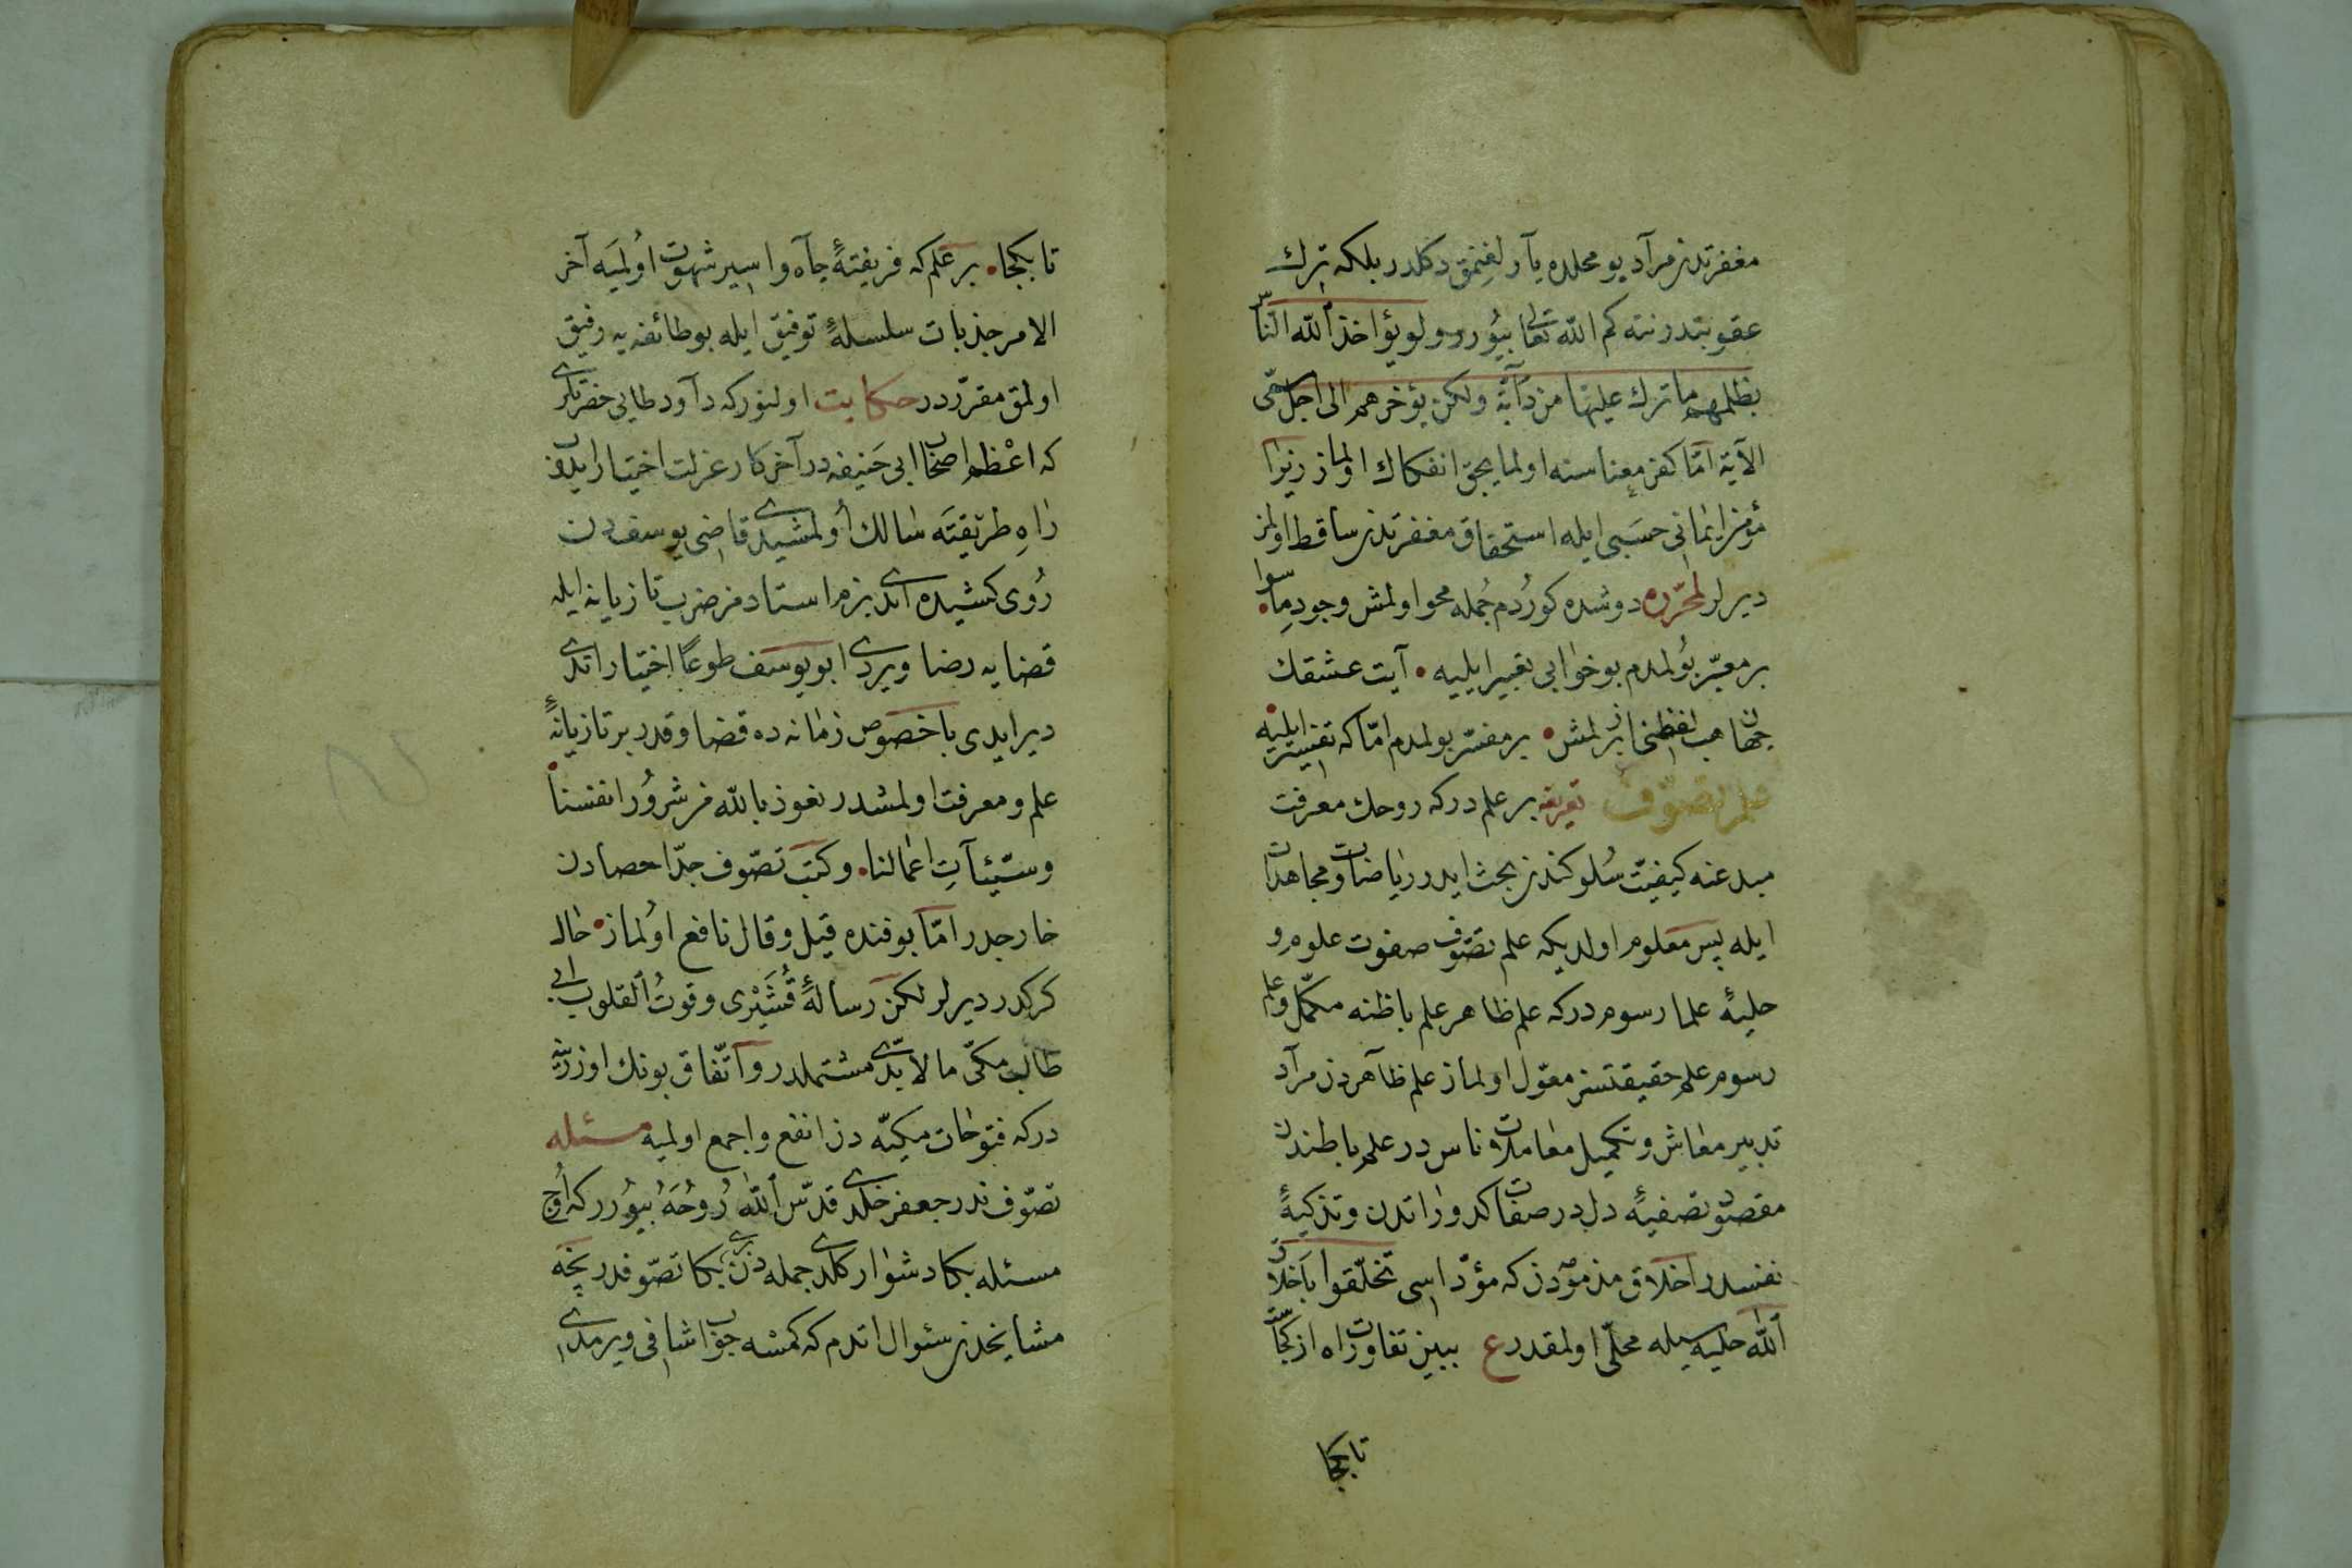 مغفرتدن مراد بو محلده يارلغنمق دكلدر بلكه ترك
عقوبتدر نته كم الله تعالى بيورر ولو يؤاخذ الله الناس
بظلمهم ما ترك عليها من دآبة ولكن يؤخرهم الى اجل مسمى
الآية اما كفر معناسنه اولمايجق انفكاك اولماز زيرا
مؤمن ايمانى حسبى ايله استحقاق مغفرتدن ساقط اولمز
ديرلر لمحرره دوشده كوردم جمله محو اولمش وجود ماسوا
بر معبر بولمدم بو خوابى تعبير ايليه آيت عشقك
جهان هب لفظنى ازبرلمش بر مفسر بولمدم اما كه تفسير ايليه
علم تصوف تعريفه بر علمدر كه روحك معرفت
مبدعنه كيفيت سلوكندن بحث ايدر رياضات ومجاهدات
ايله پس معلوم اولديكه علم تصوف صفوت علوم و
حليهٔ علما رسومدر كه علم ظاهر علم باطنه مكمل وعلم
رسوم علم حقيقتسز معول اولماز علم ظاهردن مراد
تدبير معاش وتكميل معاملات ناسدر علم باطندن
مقصود تصفيهٔ دلدر صفات كدوراتدن وتزكيهٔ
نفسدر اخلاق مذمومه‌دن كه مؤداسى تخلقوا باخلاق
الله حليه سيله محلى اولمقدر ع ببين تفاوت راه از كجاست
تا بكجا
تا بكجا بر علم كه فريفتهٔ جاه واسير شهوت اولميه آخر
الامر جذبات سلسلهٔ توفيق ايله بو طائفه يه رفيق
اولمق مقرردر حكايت اولنور كه داود طايى حضرتلرى
كه اعظم اصحاب ابى حنيفه در آخر كار عزلت اختيار ايدوب
راه طريقته سالك اولمشيدى قاضى يوسفدن
روى كشيده ايدى بزم استادمز ضرب تازيانه ايله
قضايه رضا ويردى ابو يوسف طوعا اختيار اتدى
دير ايدى با خصوص زمانه ده قضا وقدر بر تازيانهٔ
علم ومعرفت اولمشدر نعوذ بالله من شرور انفسنا
وسيئات اعمالنا وكتب تصوف جدا حصادن
خارجدر اما بو فنده قيل وقال نافع اولماز حال
كركدر ديرلر لكن رسالهٔ قشيرى وقوت القلوب ابى
طالب مكى ما لابدى مشتملدر واتفاق بونك اوزرينه
در كه فتوحات مكيه دن انفع واجمع اولميه مسئله
تصوفندر جعفر خلدى قدس الله روحه بيورر كه اوچ
مسئله بكا دشوار كلدى جمله دن برى بكا تصوفدر نيچه
مشايخدن سئوال اتدم كه كمسه جواب شافى ويرمدى